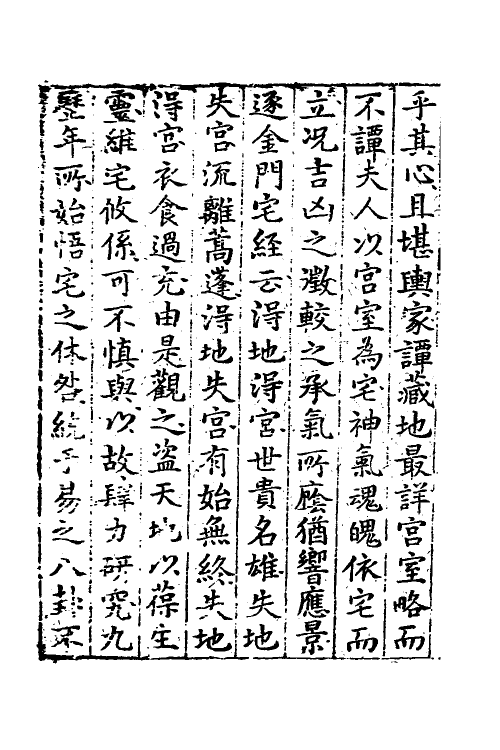 乎其心且堪輿家譚藏地最詳宮室略而
不譚夫人以宮室為宅神氣魂魄依宅而
立况吉凶之澂較之承氣所廕猶響應景
逐金門宅經云淂地淂宮世貴名雄失地
失宮流離蒿蓬淂地失宮有始無終失地
淂宮衣食過充由是觀之盗天地以葆生
靈維宅攸係可不慎與以故殫力研究九
歷年所始悟宅之体咎統乎易之八卦不